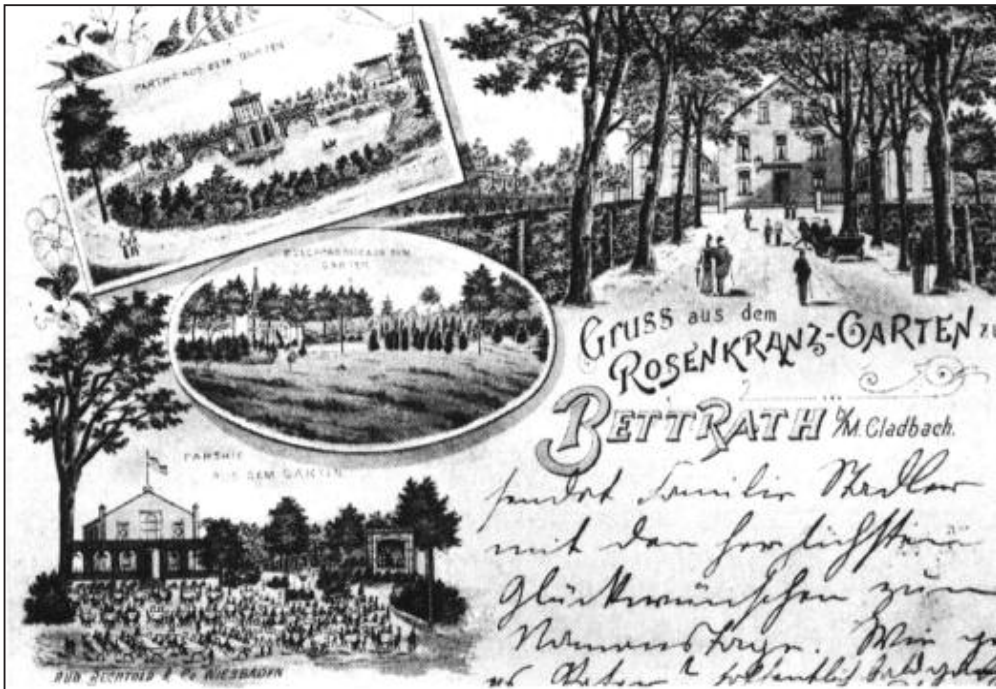 PARTHIE AUS DEM GARTEN
GARTEN
PARTHIE
AUS DEM GARTEN
GRUSS aus dem
ROSENKRANZ-GARTEN zu
BETTRATH b/M. Gladbach.
sendet Familie Stadler
mit den herzlichsten
Glückwünschen zum
Namenstage. Wir
hoffentlich
RUD. BECHTOLD & Co WIESBADEN